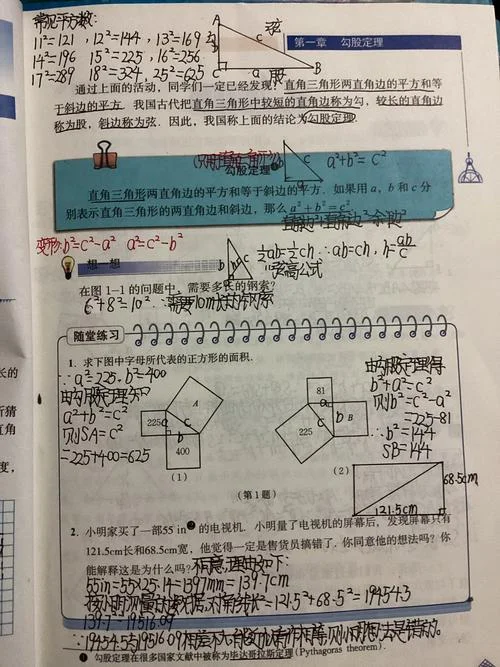 常见平方数:
11²=121, 12²=144, 13²=169
14²=196 15²=225, 16²=256
17²=289 18²=324, 25²=625
A
勾
c
弦
a
股
B
第一章 勾股定理
通过上面的活动,同学们一定已经发现了直角三角形两直角边的平方和等
于斜边的平方. 我国古代把直角三角形中较短的直角边称为勾, 较长的直角边
称为股, 斜边称为弦. 因此, 我国称上面的结论为勾股定理.
勾股定理❶
c
a²+b²=c²
直角三角形两直角边的平方和等于斜边的平方. 如果用 a, b 和 c 分
别表示直角三角形的两直角边和斜边, 那么 a²+b²=c².
变形:b²=c²-a² a²=c²-b²
想一想
½ab=½ch ∴ab=ch, h=ab/c
等高公式
在图 1-1 的问题中, 需要多长的钢索?
6²+8²=10² ∴需要10m长的钢索
随堂练习
1. 求下图中字母所代表的正方形的面积.
∵a²=225, b²=400
由勾股定理知
a²+b²=c²
则SA=c²
=225+400=625
A
225
a
c
b
400
(1)
81
a
b
B
c
225
(2)
由勾股定理得
b²+a²=c²
则b²=c²-a²
=225-81
∴b²=144
SB=144
(第 1 题)
68.5cm
121.5cm
2. 小明家买了一部55 in❷ 的电视机. 小明量了电视机的屏幕后, 发现屏幕只有
121.5cm长和68.5cm宽, 他觉得一定是售货员搞错了. 你同意他的想法吗? 你
能解释这是为什么吗? 不同意,理由如下:
55in=55×25.4=1397mm=139.7cm
=121.5²+68.5²=19454.5
139.7²=19516.09
∵19454.5与19516.09相差不大
❶ 勾股定理在很多国家文献中被称为毕达哥拉斯定理 (Pythagoras theorem).